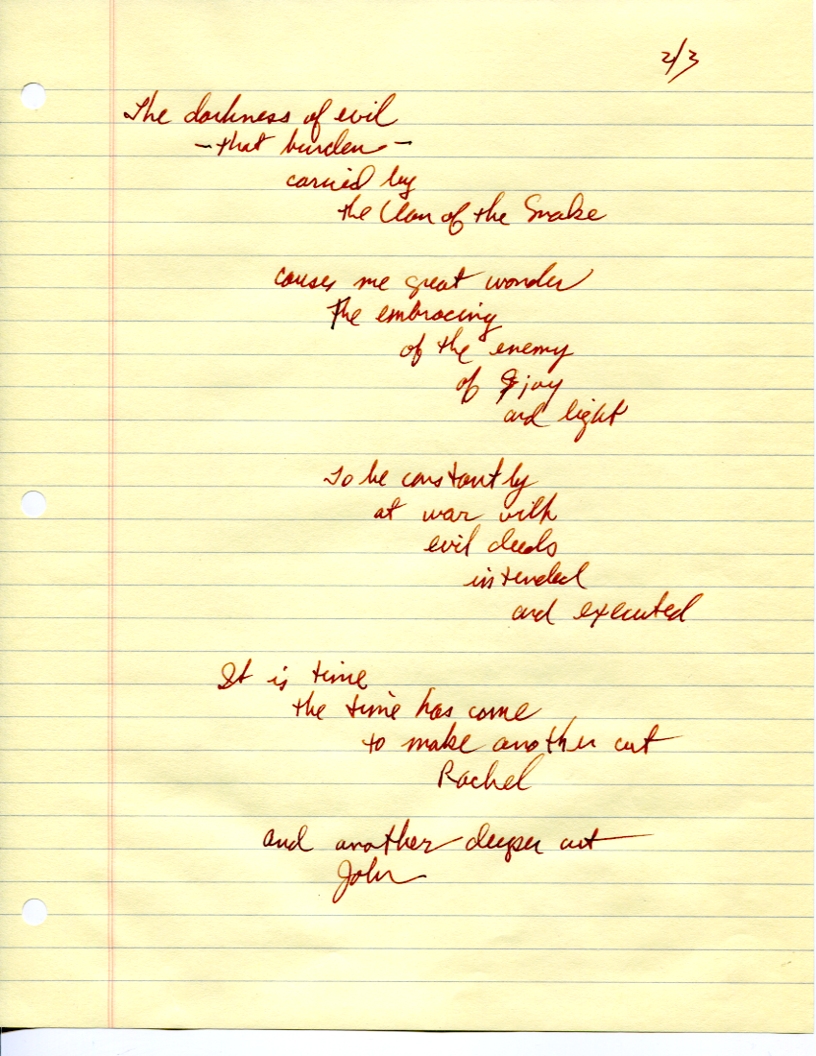 2/3
The darkness of evil
- that burden -
carried by
the Clan of the Snake
causes me great wonder
The embracing
of the enemy
of joy
and light
To be constantly
at war with
evil deeds
intended
and executed
It is time
the time has come
to make another cut
Rachel
and another deeper cut
John